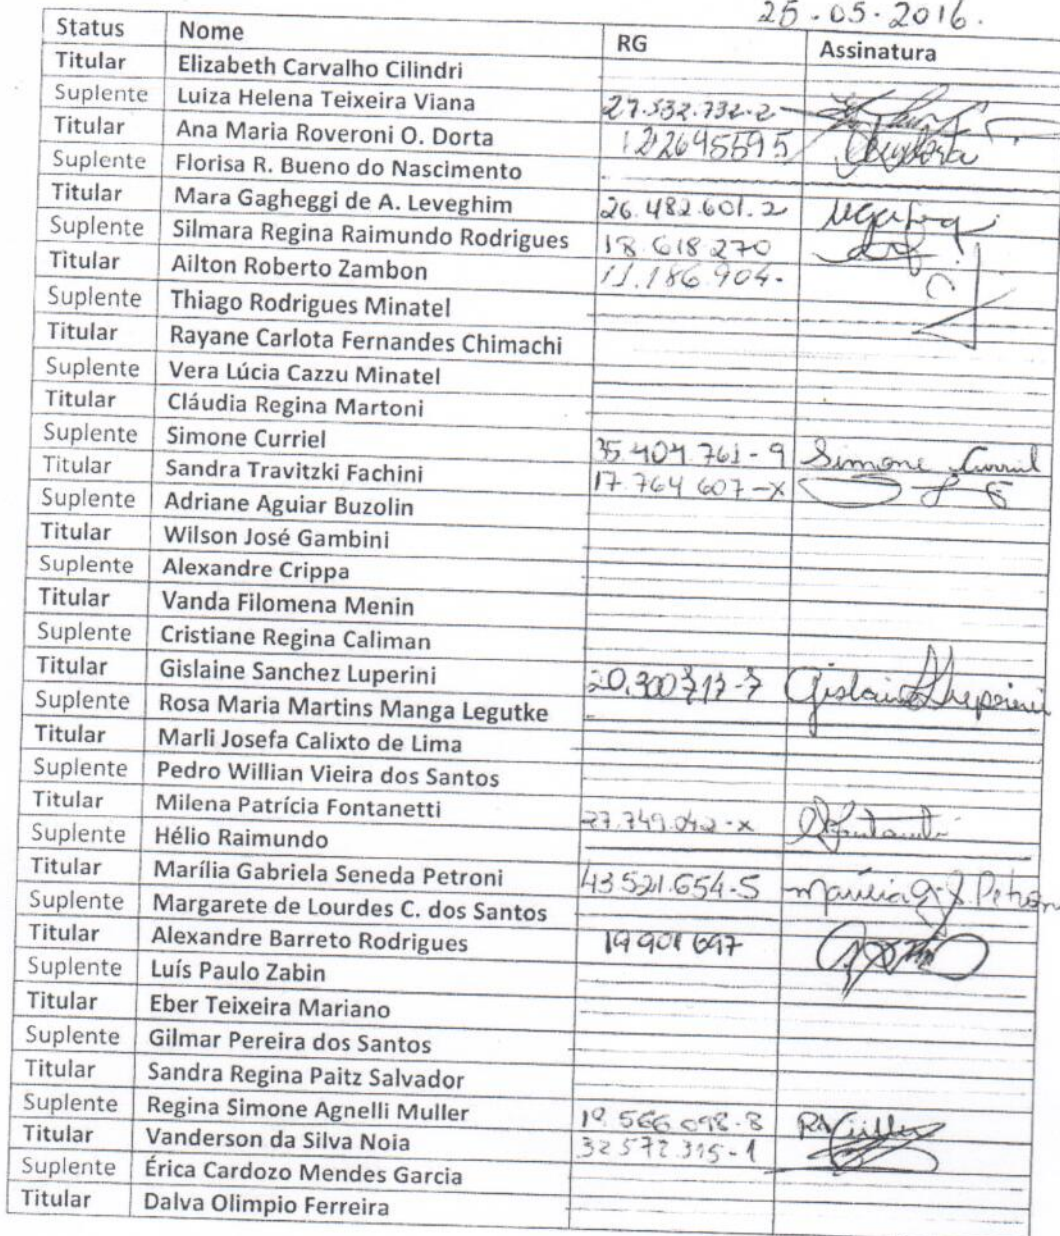 25.05.2016.
Status Nome RG Assinatura
Titular Elizabeth Carvalho Cilindri
Suplente Luiza Helena Teixeira Viana 27.532.732-2
Titular Ana Maria Roveroni O. Dorta 122645595
Suplente Florisa R. Bueno do Nascimento
Titular Mara Gagheggi de A. Leveghim 26.482.601.2
Suplente Silmara Regina Raimundo Rodrigues 18.618.270
Titular Ailton Roberto Zambon 11.186.904-
Suplente Thiago Rodrigues Minatel
Titular Rayane Carlota Fernandes Chimachi
Suplente Vera Lúcia Cazzu Minatel
Titular Cláudia Regina Martoni
Suplente Simone Curriel 35.404.761-9 Simone Curriel
Titular Sandra Travitzki Fachini 17.764.607-X
Suplente Adriane Aguiar Buzolin
Titular Wilson José Gambini
Suplente Alexandre Crippa
Titular Vanda Filomena Menin
Suplente Cristiane Regina Caliman
Titular Gislaine Sanchez Luperini 20.300717-7 Gislaine Luperini
Suplente Rosa Maria Martins Manga Legutke
Titular Marli Josefa Calixto de Lima
Suplente Pedro Willian Vieira dos Santos
Titular Milena Patrícia Fontanetti 27.749.042-x
Suplente Hélio Raimundo
Titular Marília Gabriela Seneda Petroni 43.521.654-5 Marília G. S. Petroni
Suplente Margarete de Lourdes C. dos Santos
Titular Alexandre Barreto Rodrigues 19 901 697
Suplente Luís Paulo Zabin
Titular Eber Teixeira Mariano
Suplente Gilmar Pereira dos Santos
Titular Sandra Regina Paitz Salvador
Suplente Regina Simone Agnelli Muller 19.566.098-8 RAMüller
Titular Vanderson da Silva Noia 32572.315-1
Suplente Érica Cardozo Mendes Garcia
Titular Dalva Olimpio Ferreira